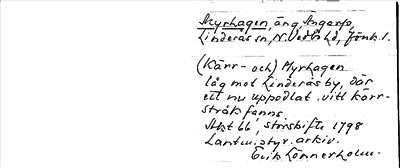 Myrhagen, äng, Angarp,
Linderås sn, N. Vedbo hd, Jönk. l.
(Kärr- och) Myrhagen
låg mot Linderås by, där
ett nu uppodlat, vitt kärr-
stråk fanns.
Akt 66, storskifte 1798
Lantm.styr. arkiv.
Erik Lönnerholm.